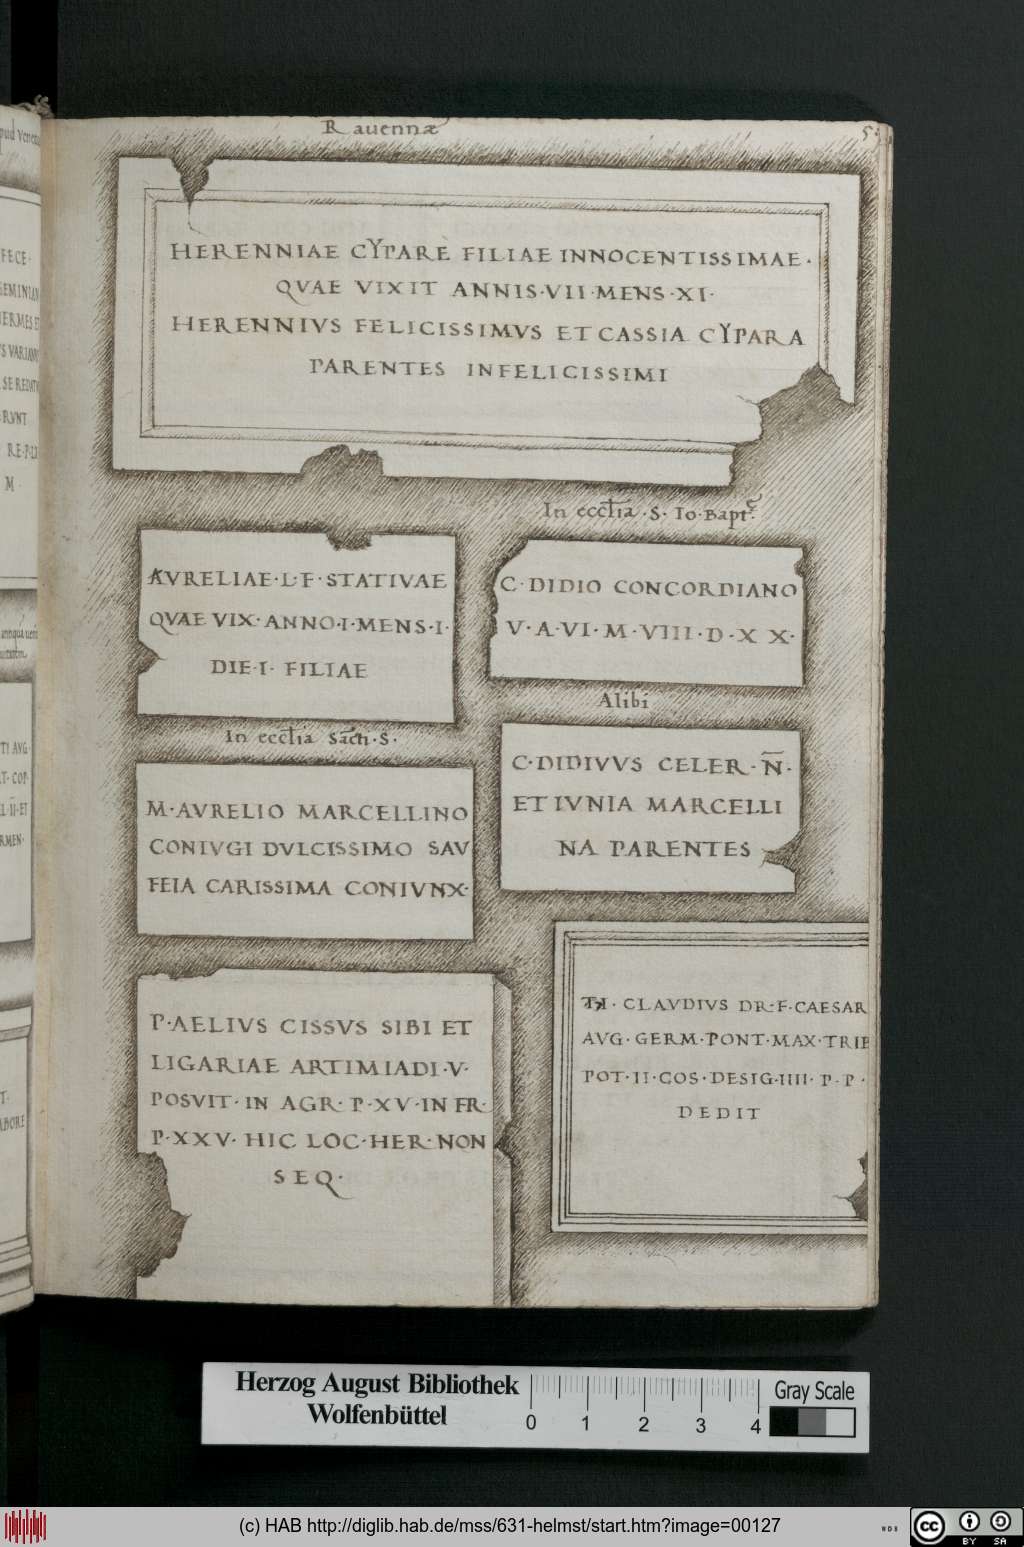 Rauennæ
HERENNIAE CYPARE FILIAE INNOCENTISSIMAE·
QVAE VIXIT ANNIS·VII·MENS·XI·
HERENNIVS FELICISSIMVS ET CASSIA CYPARA
PARENTES INFELICISSIMI
In eccl̅ia ·S· Io·Bapt
AVRELIAE·L·F·STATIVAE
QVAE VIX·ANNO·I·MENS·I·
DIE·I· FILIAE
C·DIDIO CONCORDIANO
V·A·VI·M·VIII·D·X X·
Alibi
In eccl̅ia Sacti·S·
C·DIDIVVS CELER·N̅·
ET IVNIA MARCELLI
NA PARENTES
M·AVRELIO MARCELLINO
CONIVGI DVLCISSIMO SAV
FEIA CARISSIMA CONIVNX·
P·AELIVS CISSVS SIBI ET
LIGARIAE ARTIMIADI·V·
POSVIT·IN AGR·P·XV·IN FR·
P·XXV·HIC LOC·HER·NON
SEQ·
TI· CLAVDIVS DR·F·CAESAR
AVG·GERM·PONT·MAX·TRIB
POT·II·COS·DESIG·IIII·P·P·
DEDIT
FECE·
GEMINIAN
HERMES ET
S VARIANV
SE REDATV
RVNT
RE·P·LX
M
TI AVG·
T·COP·
L·II·ET
RMEN·
T·
ABORE
Herzog August Bibliothek
Wolfenbüttel
0 1 2 3 4
Gray Scale
(c) HAB http://diglib.hab.de/mss/631-helmst/start.htm?image=00127
WDB
cc BY SA